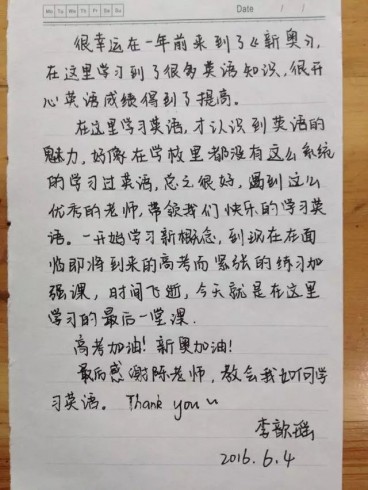 Mo Tu We Th Fr Sa Su Date / /
很幸运在一年前来到了《新奥》,
在这里学习到了很多英语知识,很开
心英语成绩得到了提高。
在这里学习英语,才认识到英语的
魅力,好像在学校里都没有这么系统
的学习过英语,总之很好,遇到这么
优秀的老师,带领我们快乐的学习英
语。一开始学习新概念,到现在在面
临即将到来的高考而紧张的练习加
强课,时间飞逝,今天就是在这里
学习的最后一堂课.
高考加油!新奥加油!
最后感谢陈老师,教会我如何学
习英语。Thank you ~
李歆瑶
2016.6.4